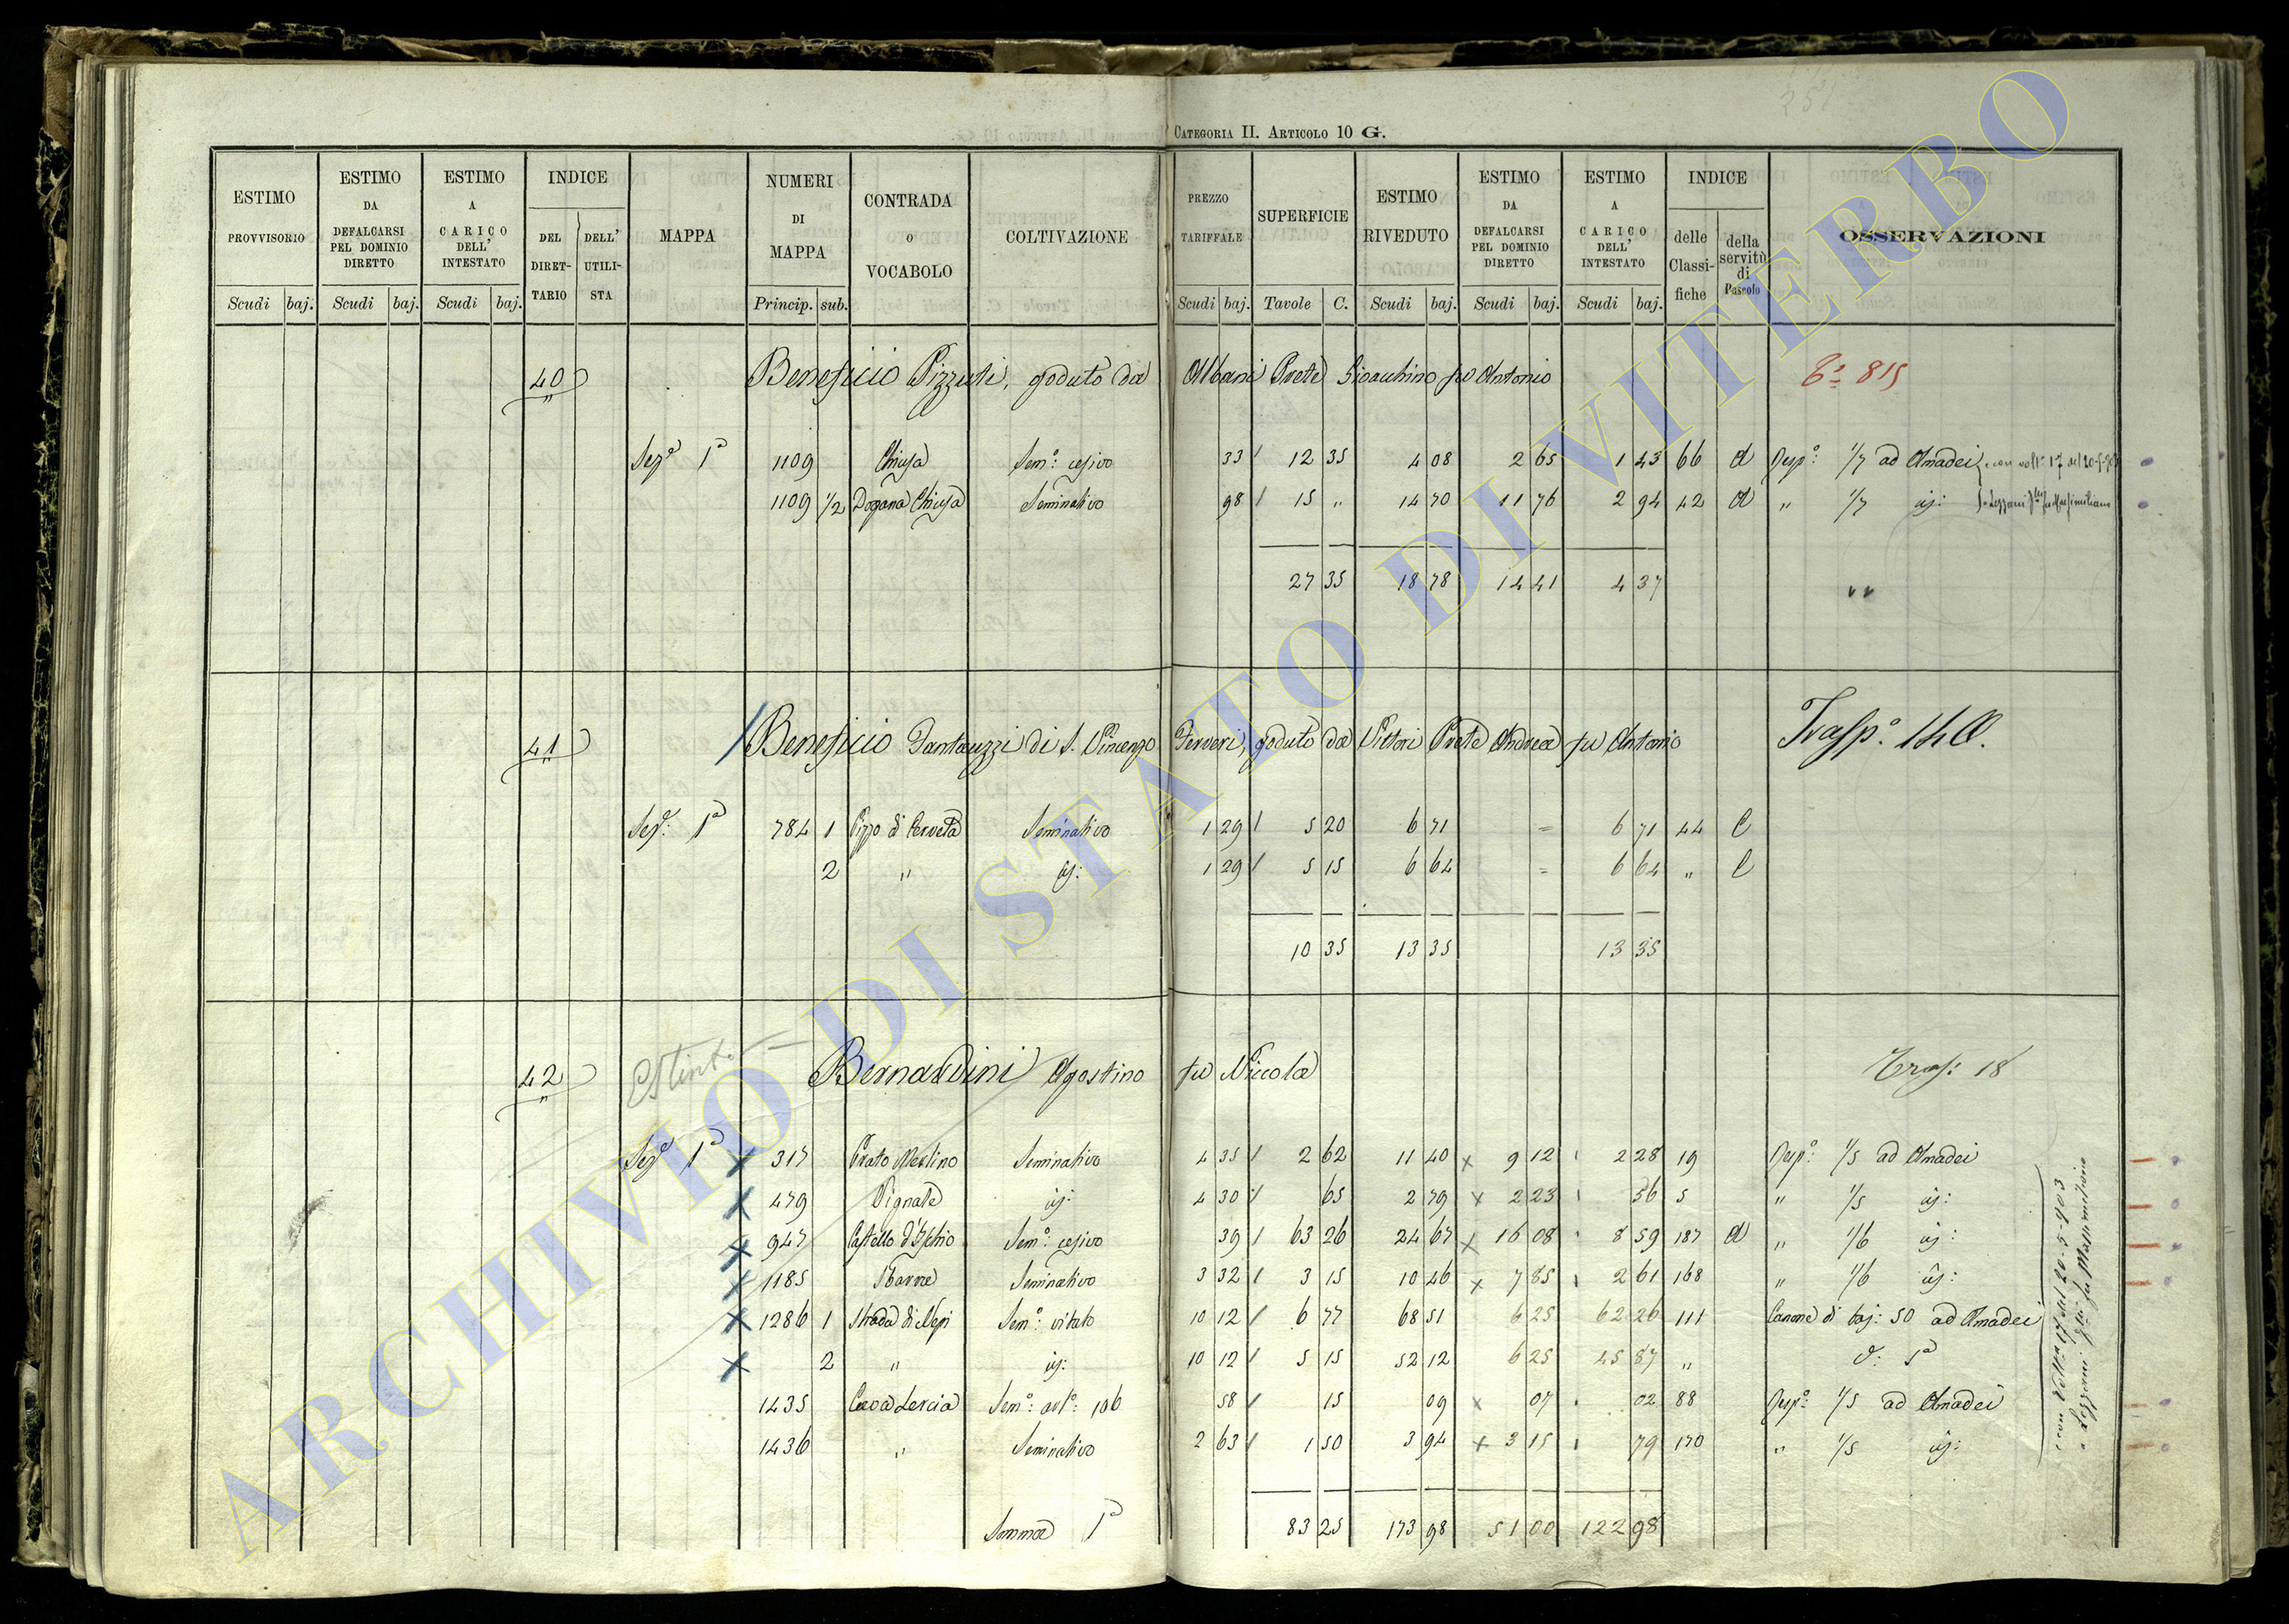 251
CATEGORIA II. ARTICOLO 10 G.
ESTIMO PROVVISORIO Scudi baj. ESTIMO DA DEFALCARSI PEL DOMINIO DIRETTO Scudi baj. ESTIMO A CARICO DELL' INTESTATO Scudi baj. INDICE DEL DIRETTARIO DELL' UTILISTA MAPPA NUMERI DI MAPPA Princip. sub. CONTRADA O VOCABOLO COLTIVAZIONE PREZZO TARIFFALE Scudi baj. SUPERFICIE Tavole C. ESTIMO RIVEDUTO Scudi baj. ESTIMO DA DEFALCARSI PEL DOMINIO DIRETTO Scudi baj. ESTIMO A CARICO DELL' INTESTATO Scudi baj. INDICE delle Classifiche della servitù di Pascolo OSSERVAZIONI
40 Beneficio Pizzuti, goduto da Albani Prete Gioacchino fu Antonio 815
Sezª 1ª 1109 Chiusa Sem.º cesivo 33 12 35 4 08 2 65 1 43 66 A Risp.º 1/7 ad Amadei
1109 1/2 Dogana Chiusa Seminativo 98 15 " 14 70 11 76 2 94 42 A " 1/7 id:
27 35 18 78 14 41 4 37
41 Beneficio Dantauzzi di S. Vincenzo Ferreri, goduto da Vittori Prete Andrea fu Antonio Trasp.º 140.
Sezª 1ª 784 1 Pizzo di Cerveta Seminativo 1 29 5 20 6 71 = 6 71 44 C
2 " id: 1 29 5 15 6 64 = 6 64 " C
10 35 13 35 13 35
42 Estinta Bernardini Agostino fu Niccola Trasp: 18
Sezª 1ª x 317 Prato Merlino Seminativo 4 35 2 62 11 40 x 9 12 2 28 19 Risp.º 1/5 ad Amadei
x 479 Pignale id: 4 30 65 2 79 x 2 23 56 5 " 1/5 id:
x 947 Castello d'Ischio Sem.º cesivo 39 63 26 24 67 x 16 08 8 59 187 A " 1/6 id:
x 1185 Sbarre Seminativo 3 32 3 15 10 46 x 7 85 2 61 168 " 1/6 id:
x 1286 1 Strada di Nepi Sem.º vitato 10 12 6 77 68 51 6 25 62 26 111 Canone di baj: 50 ad Amadei
x 2 " id: 10 12 5 15 52 12 6 25 45 87 " d: 1ª
1435 Cava Lercia Sem.º art.º 106 58 15 09 x 07 02 88 Risp.º 1/5 ad Amadei
1436 " Seminativo 2 63 1 50 3 94 x 3 15 79 170 " 1/5 id:
Somma 1ª 83 25 173 98 51 00 122 98
ARCHIVIO DI STATO DI VITERBO